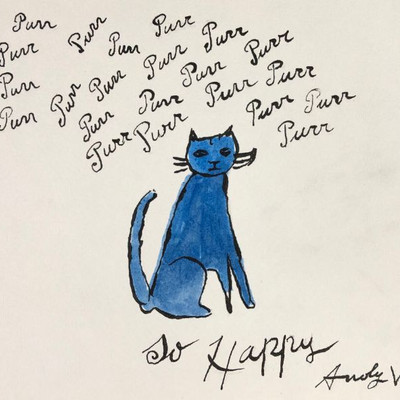 Purr Purr Purr Purr
Purr Purr Purr
Purr Purr Purr Purr
Purr Purr Purr Purr Purr Purr
Purr Purr Purr Purr
Purr
So Happy
Andy